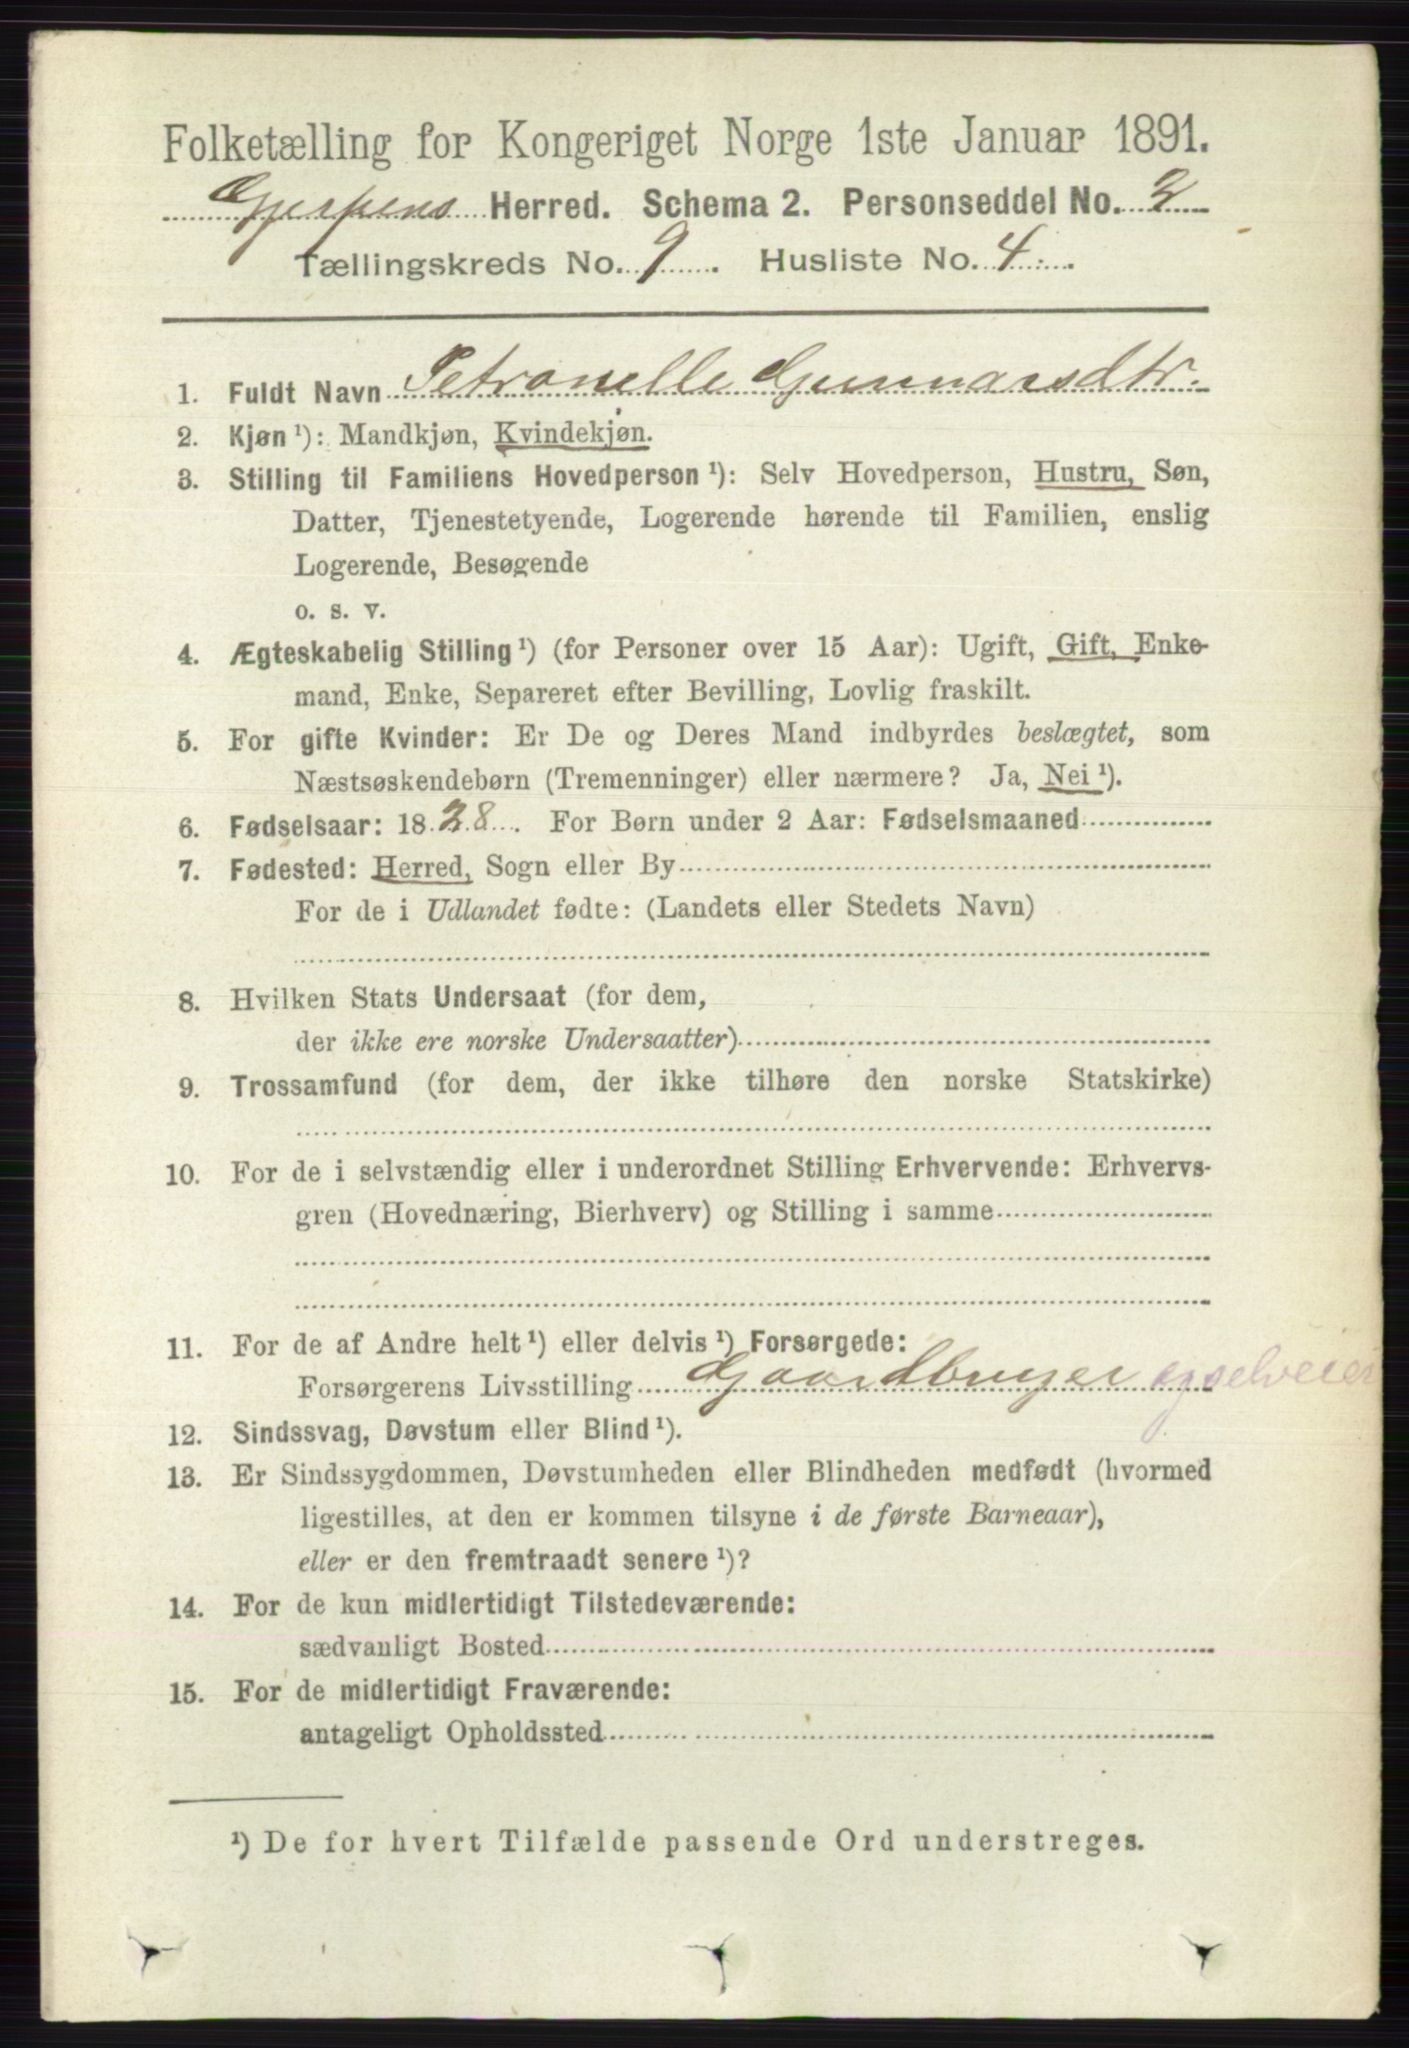 Folketælling for Kongeriget Norge 1ste Januar 1891.
Gjerpens Herred. Schema 2. Personseddel No. 2
Tællingskreds No. 9. Husliste No. 4.
1. Fuldt Navn Petronelle Gunnarsdtr.
2. Kjøn ¹): Mandkjøn, Kvindekjøn.
3. Stilling til Familiens Hovedperson ¹): Selv Hovedperson, Hustru, Søn,
Datter, Tjenestetyende, Logerende hørende til Familien, enslig
Logerende, Besøgende
o. s. v.
4. Ægteskabelig Stilling ¹) (for Personer over 15 Aar): Ugift, Gift, Enke-
mand, Enke, Separeret efter Bevilling, Lovlig fraskilt.
5. For gifte Kvinder: Er De og Deres Mand indbyrdes beslægtet, som
Næstsøskendebørn (Tremenninger) eller nærmere? Ja, Nei ¹).
6. Fødselsaar: 1828. For Børn under 2 Aar: Fødselsmaaned
7. Fødested: Herred, Sogn eller By
For de i Udlandet fødte: (Landets eller Stedets Navn)
8. Hvilken Stats Undersaat (for dem,
der ikke ere norske Undersaatter)
9. Trossamfund (for dem, der ikke tilhøre den norske Statskirke)
10. For de i selvstændig eller i underordnet Stilling Erhvervende: Erhvervs-
gren (Hovednæring, Bierhverv) og Stilling i samme
11. For de af Andre helt ¹) eller delvis ¹) Forsørgede:
Forsørgerens Livsstilling Gaardbruger og selveier
12. Sindssvag, Døvstum eller Blind ¹).
13. Er Sindssygdommen, Døvstumheden eller Blindheden medfødt (hvormed
ligestilles, at den er kommen tilsyne i de første Barneaar),
eller er den fremtraadt senere ¹)?
14. For de kun midlertidigt Tilstedeværende:
sædvanligt Bosted
15. For de midlertidigt Fraværende:
antageligt Opholdssted
¹) De for hvert Tilfælde passende Ord understreges.